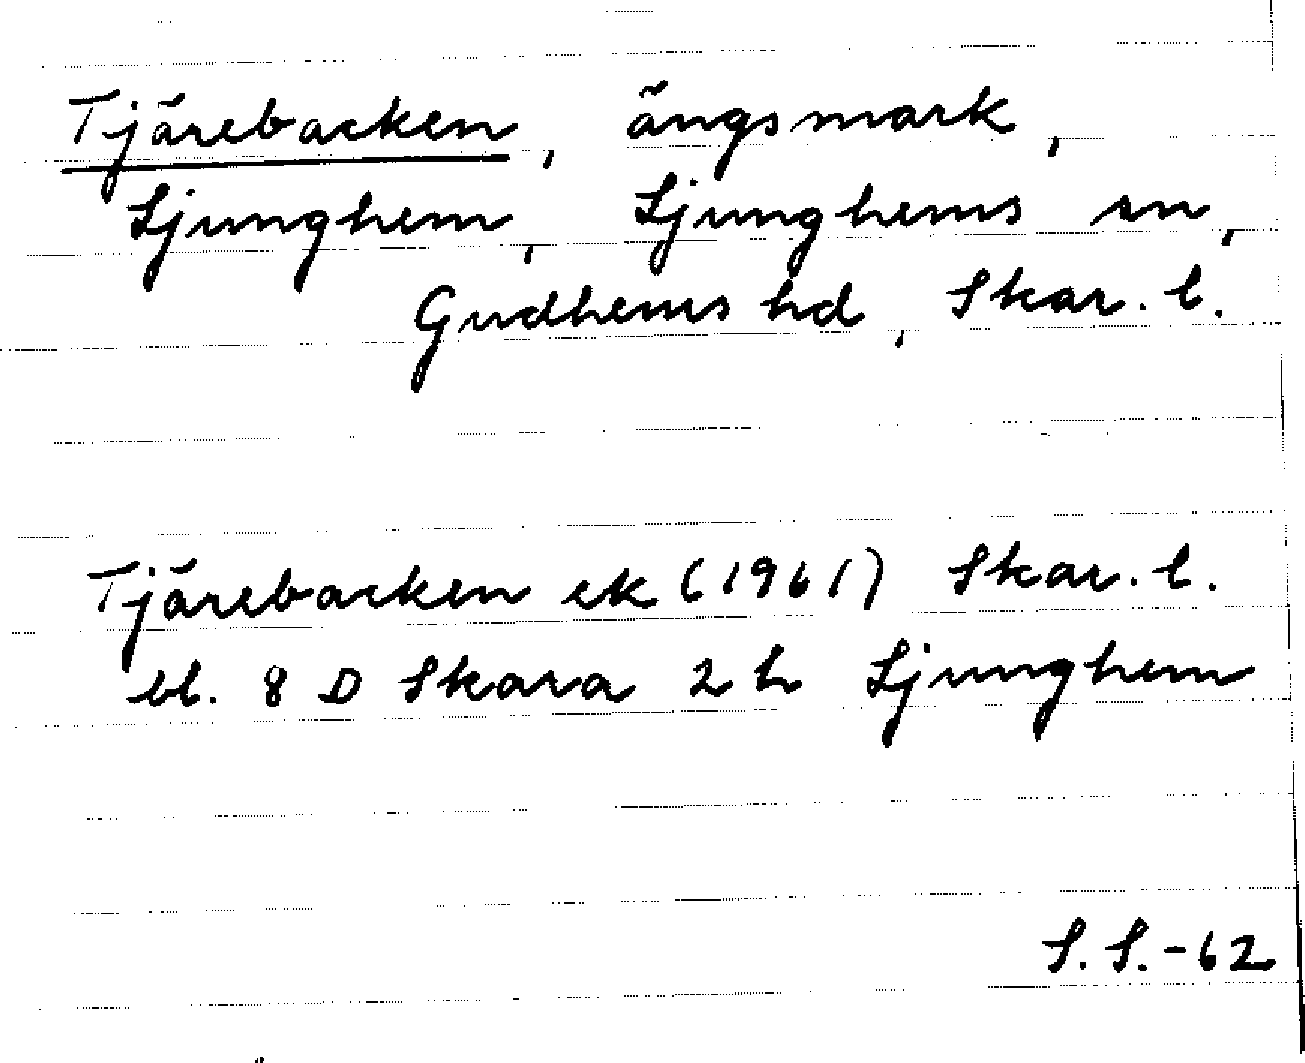 Tjärebacken, ängsmark,
Ljunghem, Ljunghems sn,
Gudhems hd, Skar. l.
Tjärebacken ek (1961) Skar. l.
bl. 8 D Skara 2 h Ljunghem
S. S. -62